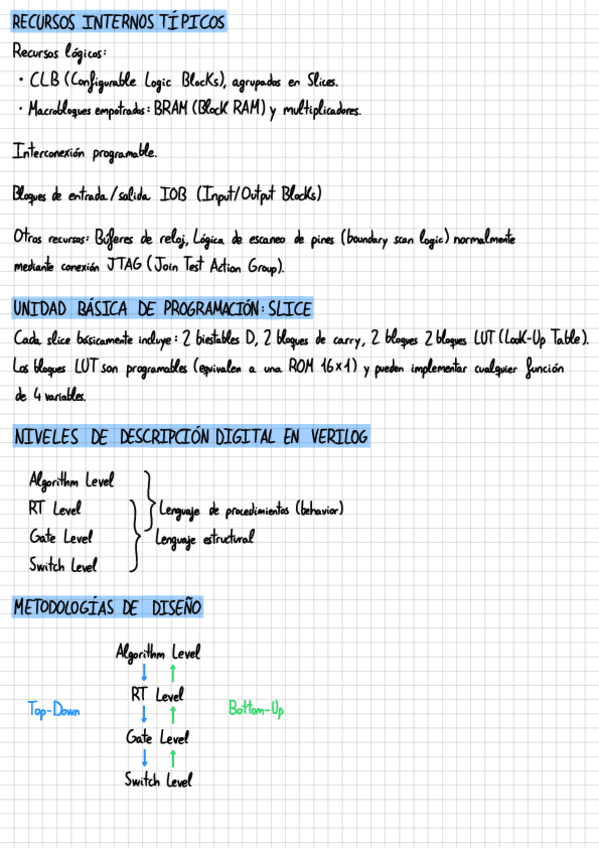 RECURSOS INTERNOS TÍPICOS
Recursos lógicos:
· CLB (Configurable Logic Blocks), agrupados en Slices.
· Macrobloques empotrados: BRAM (Block RAM) y multiplicadores.
Interconexión programable.
Bloques de entrada/salida IOB (Input/Output Blocks)
Otros recursos: Búferes de reloj, Lógica de escaneo de pines (boundary scan logic) normalmente
mediante conexión JTAG (Join Test Action Group).
UNIDAD BÁSICA DE PROGRAMACIÓN: SLICE
Cada slice básicamente incluye: 2 biestables D, 2 bloques de carry, 2 bloques 2 bloques LUT (Look-Up Table).
Los bloques LUT son programables (equivalen a una ROM 16x1) y pueden implementar cualquier función
de 4 variables.
NIVELES DE DESCRIPCIÓN DIGITAL EN VERILOG
Algorithm Level
RT Level
Lenguaje de procedimientos (behavior)
Gate Level
Lenguaje estructural
Switch Level
METODOLOGÍAS DE DISEÑO
Algorithm Level
RT Level
Top-Down
Bottom-Up
Gate Level
Switch Level